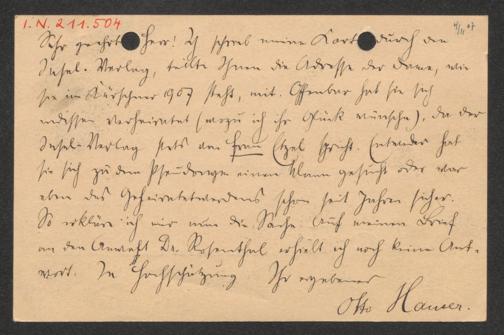 I.N. 211.504
4/11 07
Sehr geehrter Herr! Ich schrieb meine Karte durch den
Insel-Verlag, teilte Ihnen die Adresse der Dame, wie
sie im Kürschner 1907 steht, mit. Offenbar hat sie sich
indessen verheiratet (wozu ich ihr Glück wünsche), da der
Insel-Verlag stets von Frau Etzel spricht. Entweder hat
sie sich zu dem Pseudonym einen Mann gesucht oder war
eben des Geheiratetwerdens schon seit Jahren sicher.
So erkläre ich mir nun die Sache. Auf meinen Brief
an den Anwalt Dr. Rosenthal erhielt ich noch keine Ant-
wort. In Hochschätzung Ihr ergebener
Otto Hauser.